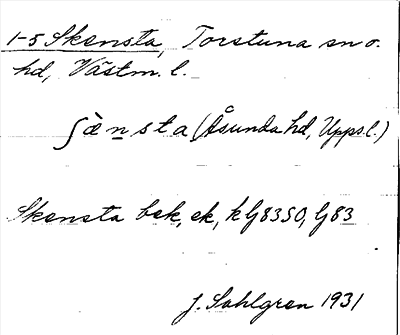 1-5 Skensta, Torstuna sn o.
hd, Västm. l.
ʃæ̀n̲sta (Åsunda hd, Upps.l.)
Skensta bek, ek, klg8350, lg83
J. Sahlgren 1931